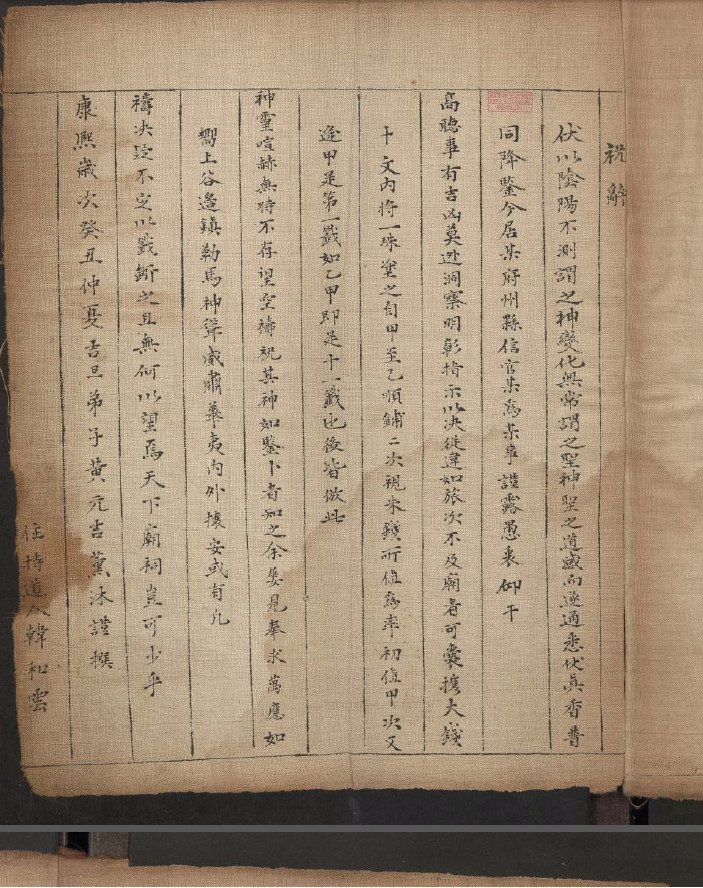 祝辭
伏以陰陽不測謂之神變化無常謂之聖神聖之道感而遂通悉伏真香普
同降鑒今居某府州縣信官某為某事謹露愚衷仰干
高聰事有吉凶莫逃洞察明彰指示以決從違如旅次不及廟者可囊攜大錢
十文內將一珠塗之自甲至乙順鋪二次視朱錢所值為率初值甲次又
逢甲是第一籤如乙甲即是十一籤也後皆倣此
神靈喧赫無時不存望空禱祝其神如鑒卜者知之余屢見奉求萬應如
嚮上谷邊鎮勒馬神聳威肅華夷內外攘安或有凡
禱決疑不定以籤斷之且無何以望焉天下廟祠豈可少乎
康熙歲次癸丑仲夏吉旦弟子黃元吉薰沐謹撰
住持道人韓和雲